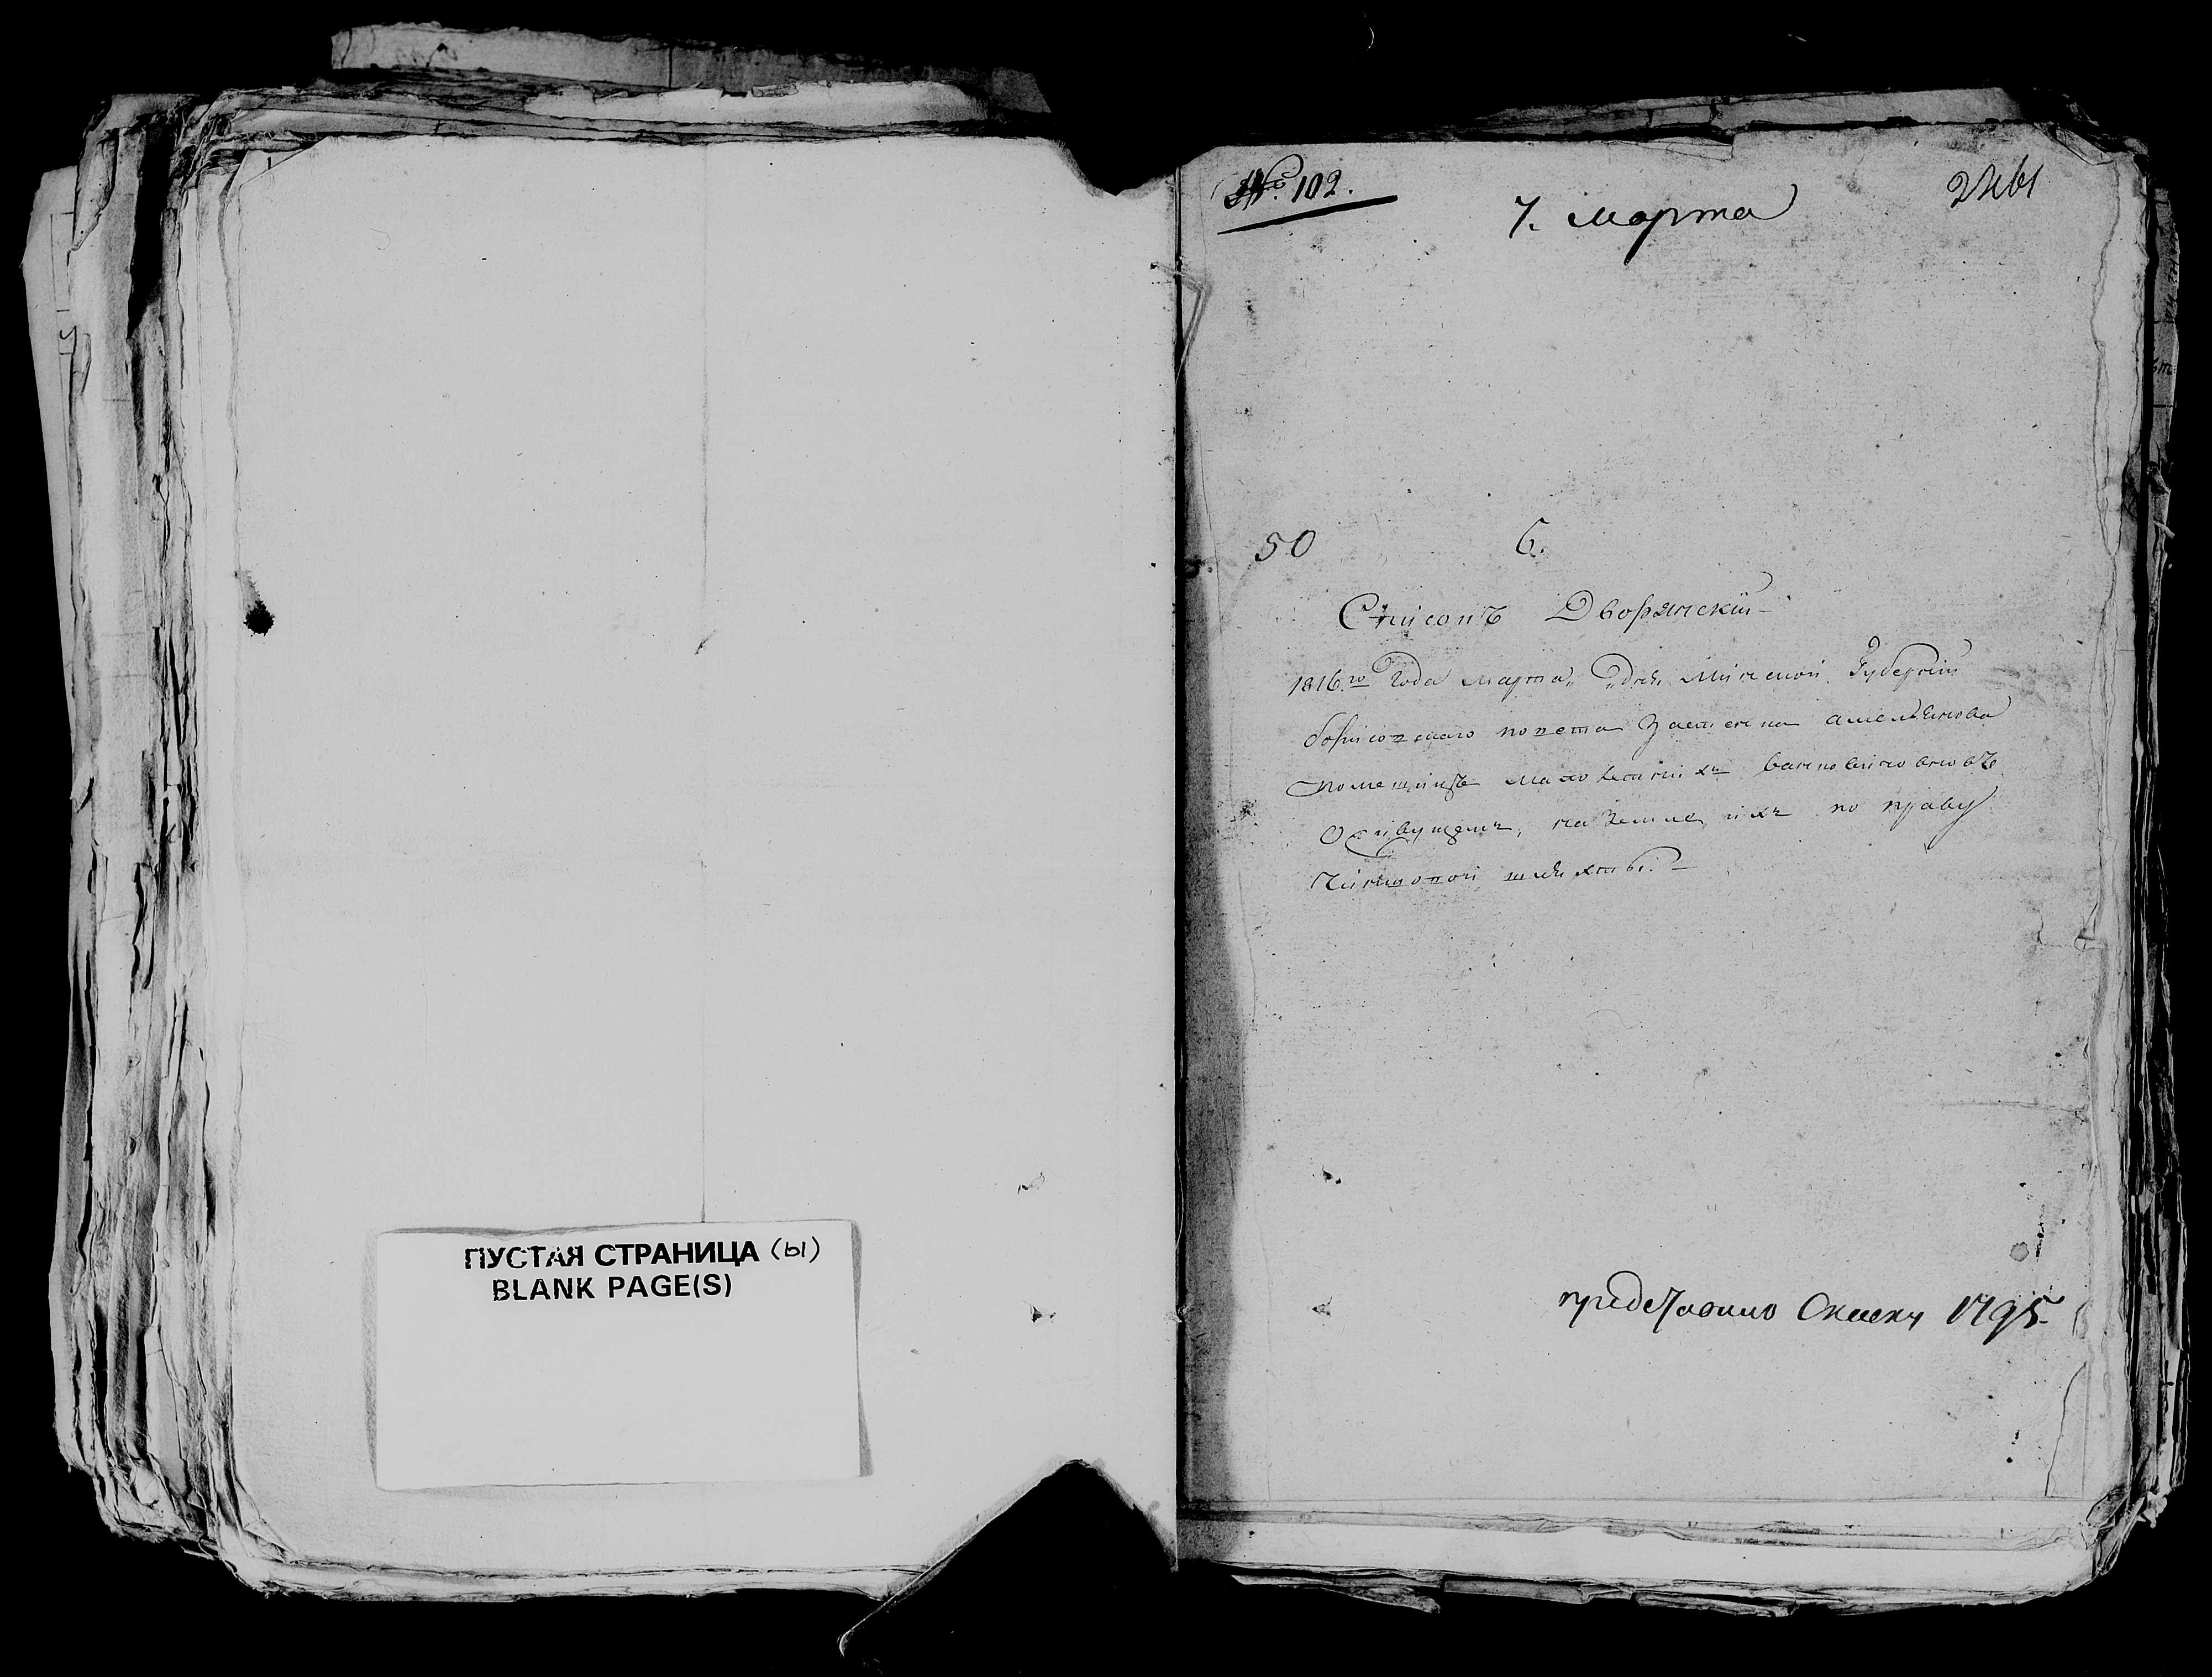 ПУСТАЯ СТРАНИЦА (Ы)
BLANK PAGE(S)
№. 102.
7. Марта
50 6.
Списокъ Дворянскій
1816го Года Марта дня Минской Губерніи
борисовскаго повета Застенка
Помещиковъ
живущемъ, на Земле ихъ по праву
Чиншовой шляхты. —
представило Скаску 1795